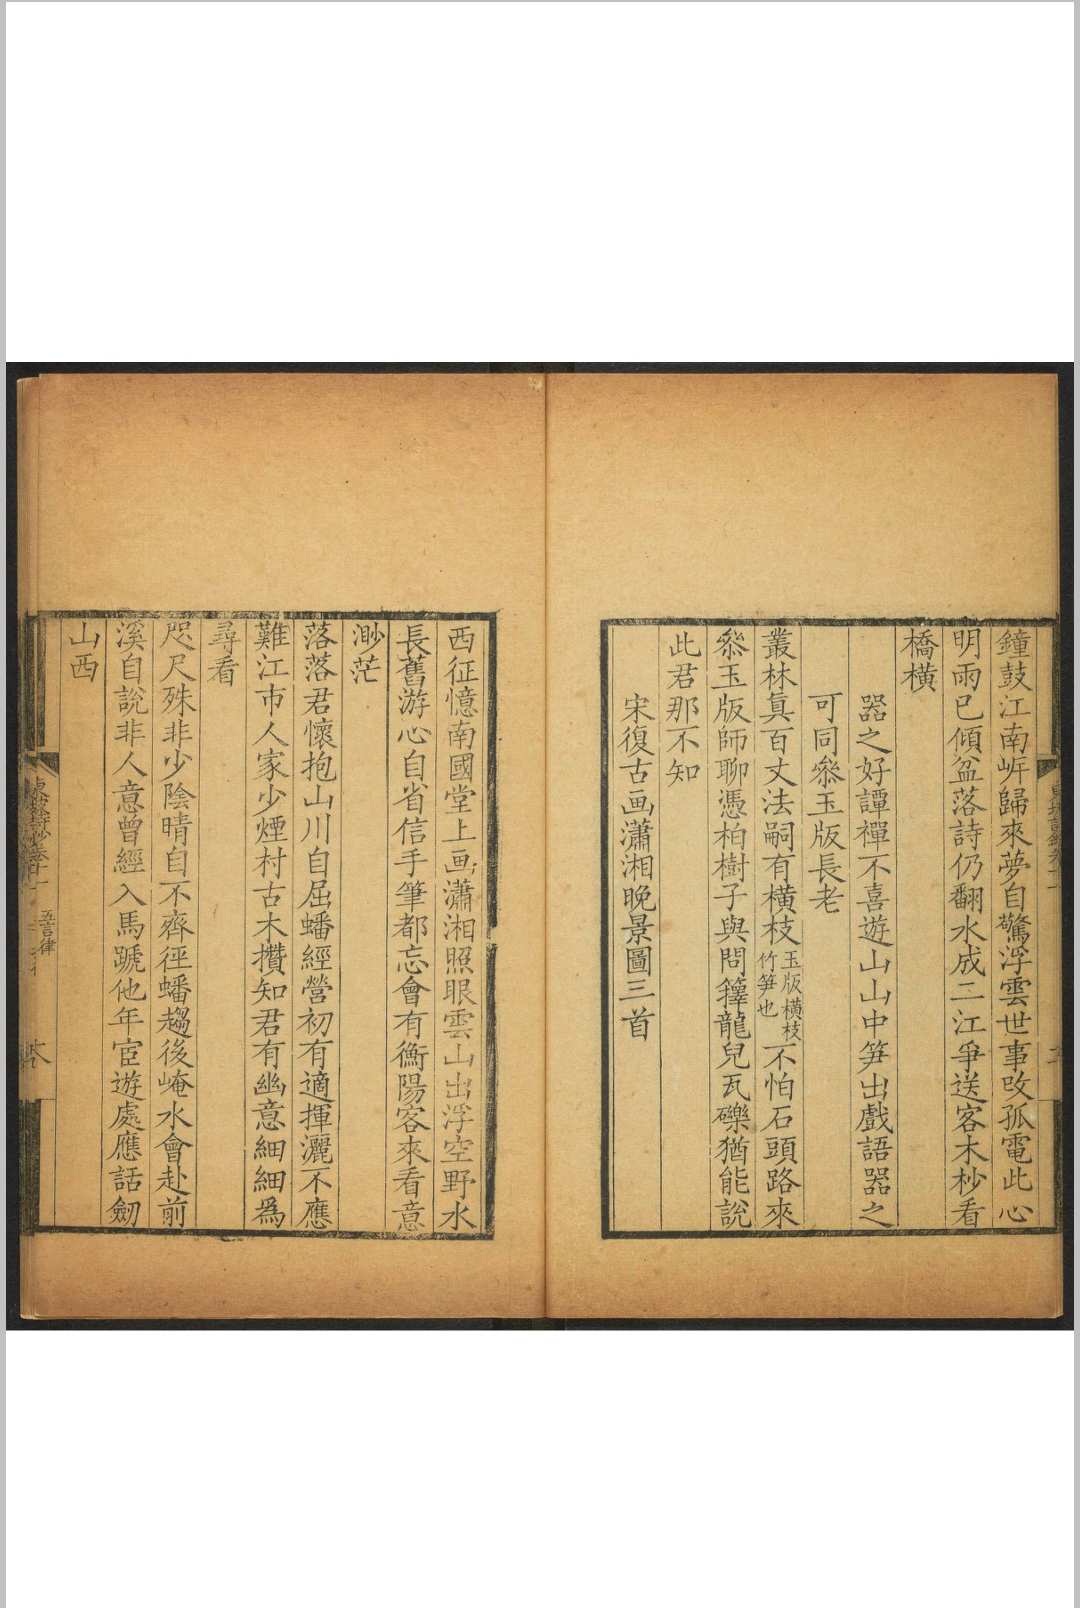 鐘鼓江南岸歸來夢自驚浮雲世事改孤電此心
明雨已傾盆落詩仍翻水成二江爭送客木杪看
橋橫
器之好譚禪不喜遊山山中笋出戲語器之
可同叅玉版長老
叢林眞百丈法嗣有橫枝玉版橫枝竹笋也不怕石頭路來
叅玉版師聊憑柏樹子與問籜龍兒瓦礫猶能說
此君那不知
宋復古画瀟湘晚景圖三首
西征憶南國堂上画瀟湘照眼雲山出浮空野水
長舊游心自省信手筆都忘會有衡陽客來看意
渺茫
落落君懷抱山川自屈蟠經營初有適揮灑不應
難江市人家少煙村古木攢知君有幽意細細爲
尋看
咫尺殊非少陰晴自不齊徑蟠趨後崦水會赴前
溪自說非人意曾經入馬蹏他年宦遊處應話劒
山西
東坡詩鈔卷十一
五言律